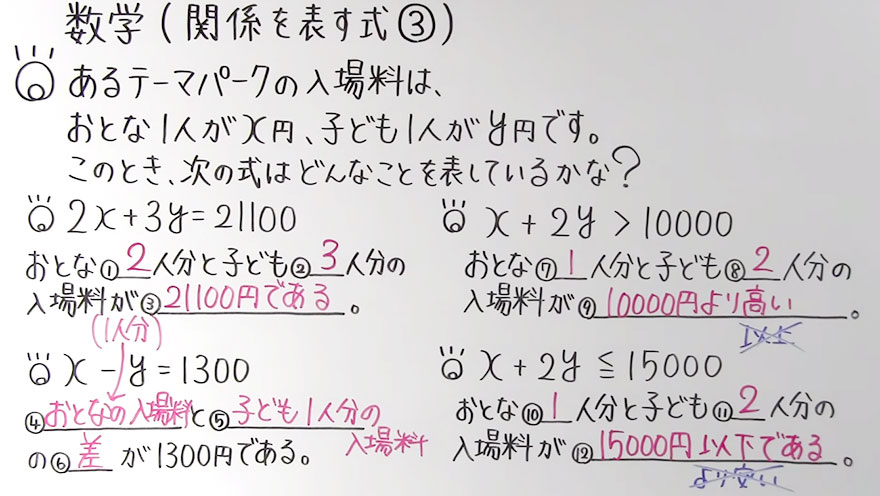 数学(関係を表す式③)
あるテーマパークの入場料は、
おとな1人がx円、子ども1人がy円です。
このとき、次の式はどんなことを表しているかな?
2x+3y=21100
おとな①2人分と子ども②3人分の
入場料が③21100円である。
(1人分)
x-y=1300
④おとなの入場料と⑤子ども1人分の
入場料
の⑥差が1300円である。
x+2y>10000
おとな⑦1人分と子ども⑧2人分の
入場料が⑨10000円より高い。
以上
x+2y≦15000
おとな⑩1人分と子ども⑪2人分の
入場料が⑫15000円以下である。
より安い